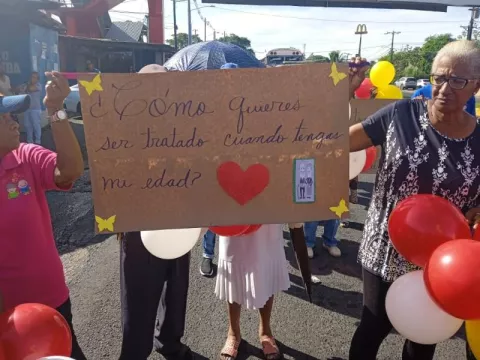 ¿Cómo quieres
ser tratado cuando tengas
mi edad?